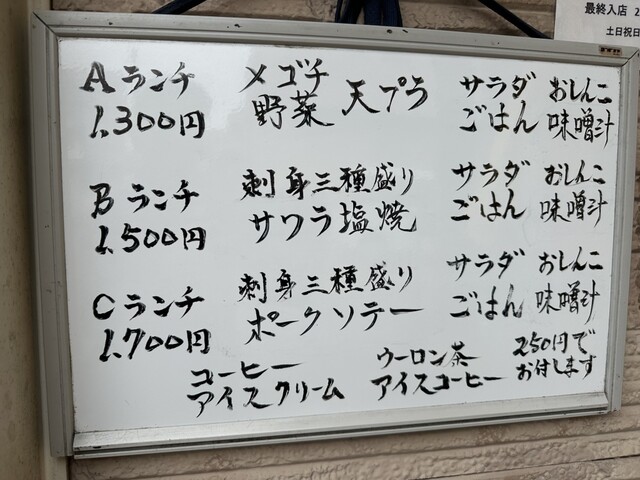 最終入店 2
土日祝日
Aランチ メゴチ 天プラ サラダ おしんこ
1,300円 野菜 ごはん 味噌汁
Bランチ 刺身三種盛り サラダ おしんこ
1,500円 サワラ塩焼 ごはん 味噌汁
Cランチ 刺身三種盛り サラダ おしんこ
1,700円 ポークソテー ごはん 味噌汁
コーヒー ウーロン茶 250円で
アイスクリーム アイスコーヒー お付します